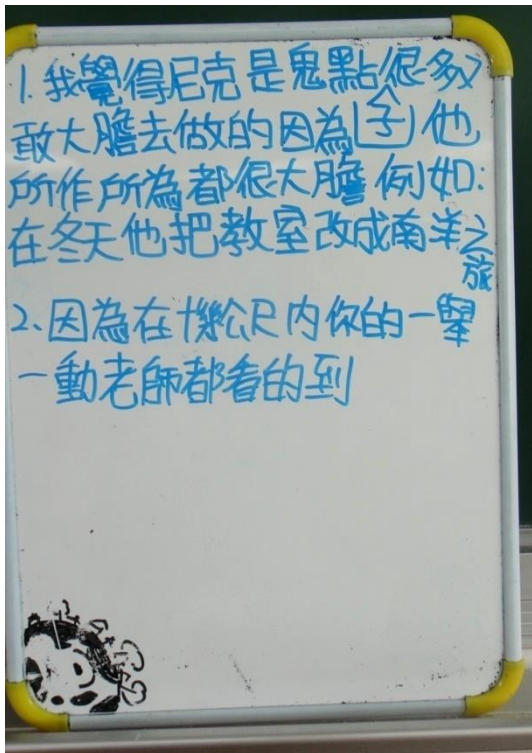 1.我覺得尼克是鬼點很多又
敢大膽去做的因為子他
所作所為都很大膽例如:
在冬天他把教室改成南洋之
旅
2、因為在十幾公尺內你的一舉
一動老師都看的到